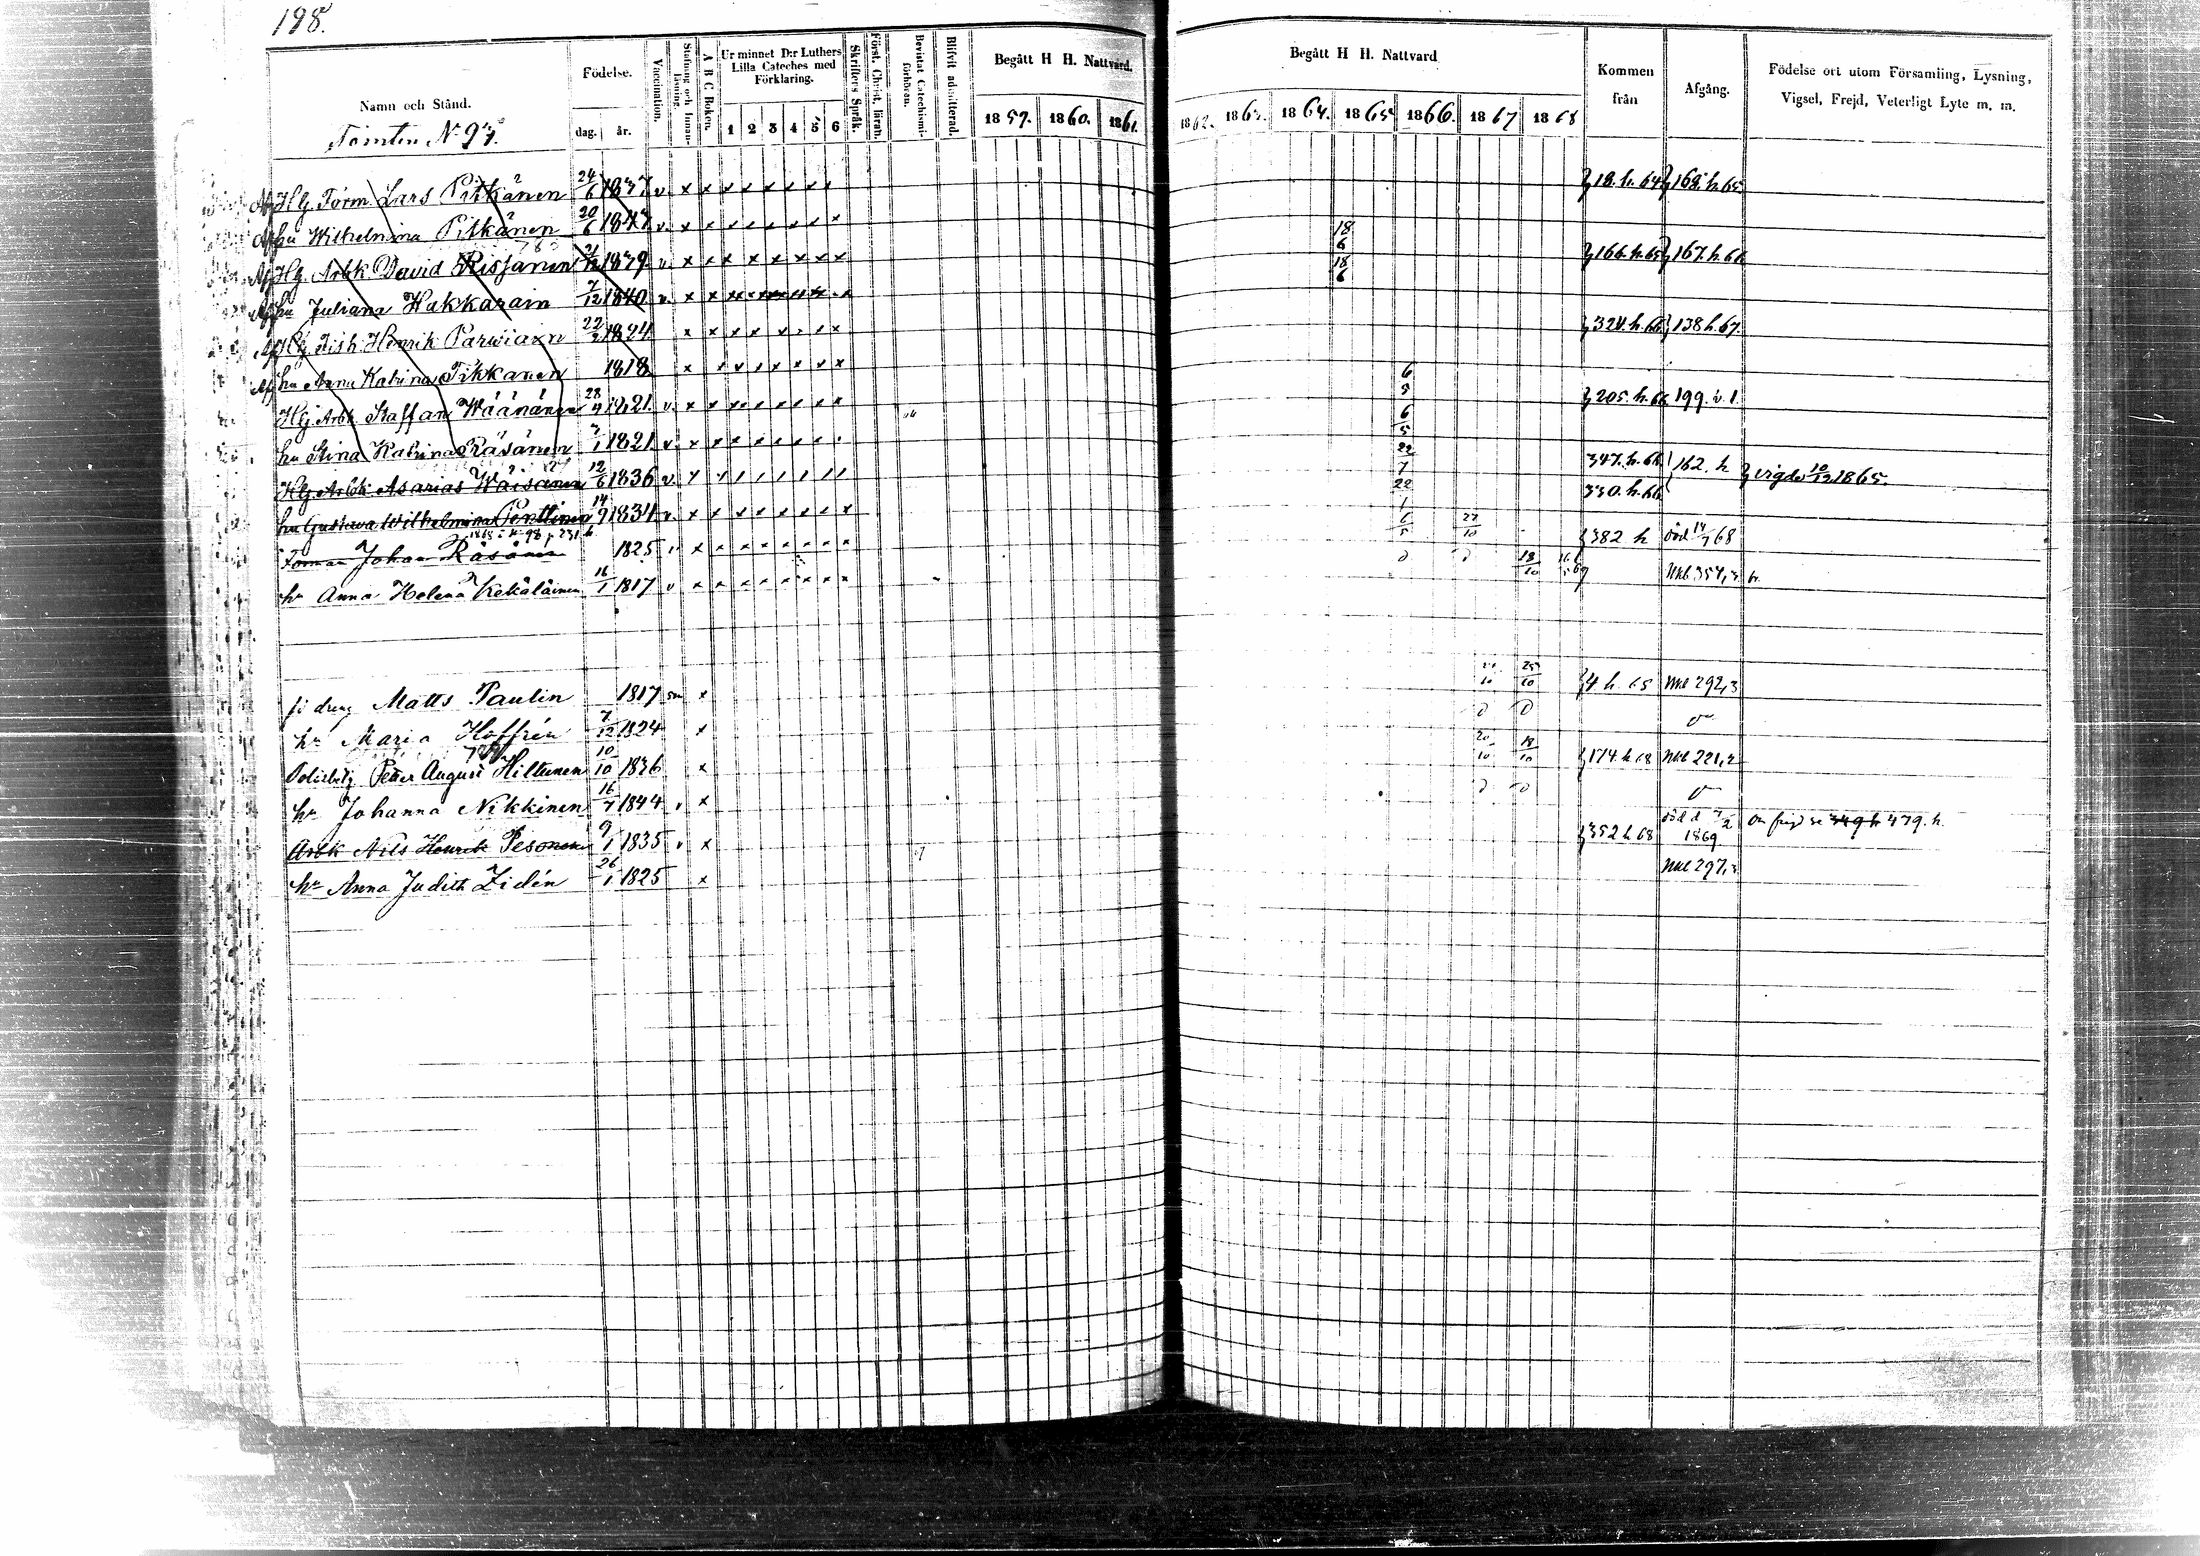 198.
Namn och Stånd.
Tomten N. 97.
Födelse.
dag. år.
Vaccination.
Stafning och Innanläsning.
A B C Boken.
Ur minnet D:r Luthers Lilla Cateches med Förklaring.
1 2 3 4 5 6
Skriftens Språk.
Först. Christ. läran.
Bevistat Catechismiförhören.
Blifvit admitterad.
Begått H H. Nattvard.
1857. 1860. 1861.
Begått H H. Nattvard
1862. 1863. 1864. 1865 1866. 1867 1868
Kommen från
Afgång.
Födelse ort utom Församling, Lysning, Vigsel, Frejd, Veterligt Lyte m. m.
Hlg. Torm Lars Pitkänen 24/6 1837. v. 18. h. 64 168. h. 65
hu Wilhelmina Pitkänen 20/6 1847 v. 18/6
Hlg Arbk David Risjanen 1839. v. 18/6 166. h. 65 167. h. 66
hu Juliana Hakkarain 7/12 1840 v.
Hlg. Henrik Parwiain 22/3 1824. 324. h. 66 138 h. 67.
hu Anna Katrina Tikkanen 1818 6/5
Hlg. Arbk Staffan Wäänänen 28/4 1821. v. 6/5 205. h. 66 199. v. 1.
hu Stina Katrina Räsänen 7/1 1821. v. 22/7
Hlg. Arbk Asarias Wäisänen 12/6 1836 v. 22/1 347. h. 66 162. h vigde 10/12 1865.
hu Gustava Wilhelmina Penttinen 14/9 1834 v. 330. h. 66
Johan Räsänen 1825 6/5 27/10 382 h död 14/7 68
hu Anna Helena Kekäläinen 16/1 1817 v 18/10 Nkb 354,3
Matts Paulin 1817 25/10 4 h 65 Nkb 292,3
hu Maria Hoffrén 7/12 1824
Petter August Hiltunen 10/10 1836 20/10 18/10 174. h 68 Nkb 221,2
hu Johanna Nikkinen 16/7 1844 v
Arbk Nils Henrik Pesonen 9/1 1835 v 352 h 68 död d 7/2 1869 om frejd se 349 h 479. h.
hu Anna Judith Zidén 26/1 1825 Nkb 297,3